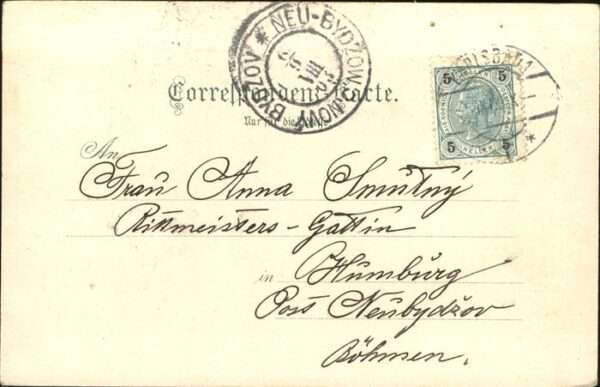 NEU-BYDŽOV * NOVÝ BYDŽOV *
5 5
5 5
Correspondenz-Karte.
Nur für die Adresse
An
Frau Anna Smutný
Rittmeisters-Gattin
in Humburg
Post Neubydžov
Böhmen.